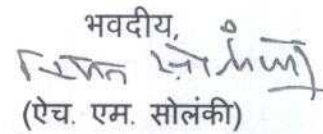 भवदीय,
(ऐच. एम. सोलंकी)